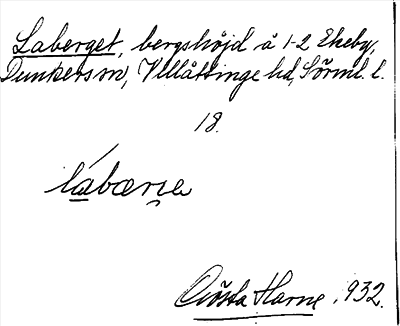 Laberget, bergshöjd å 1-2 Ekeby,
Dunkers sn, Villåttinge hd, Sörml. l.
18.
lábærıa
Gösta Harne, 1932.